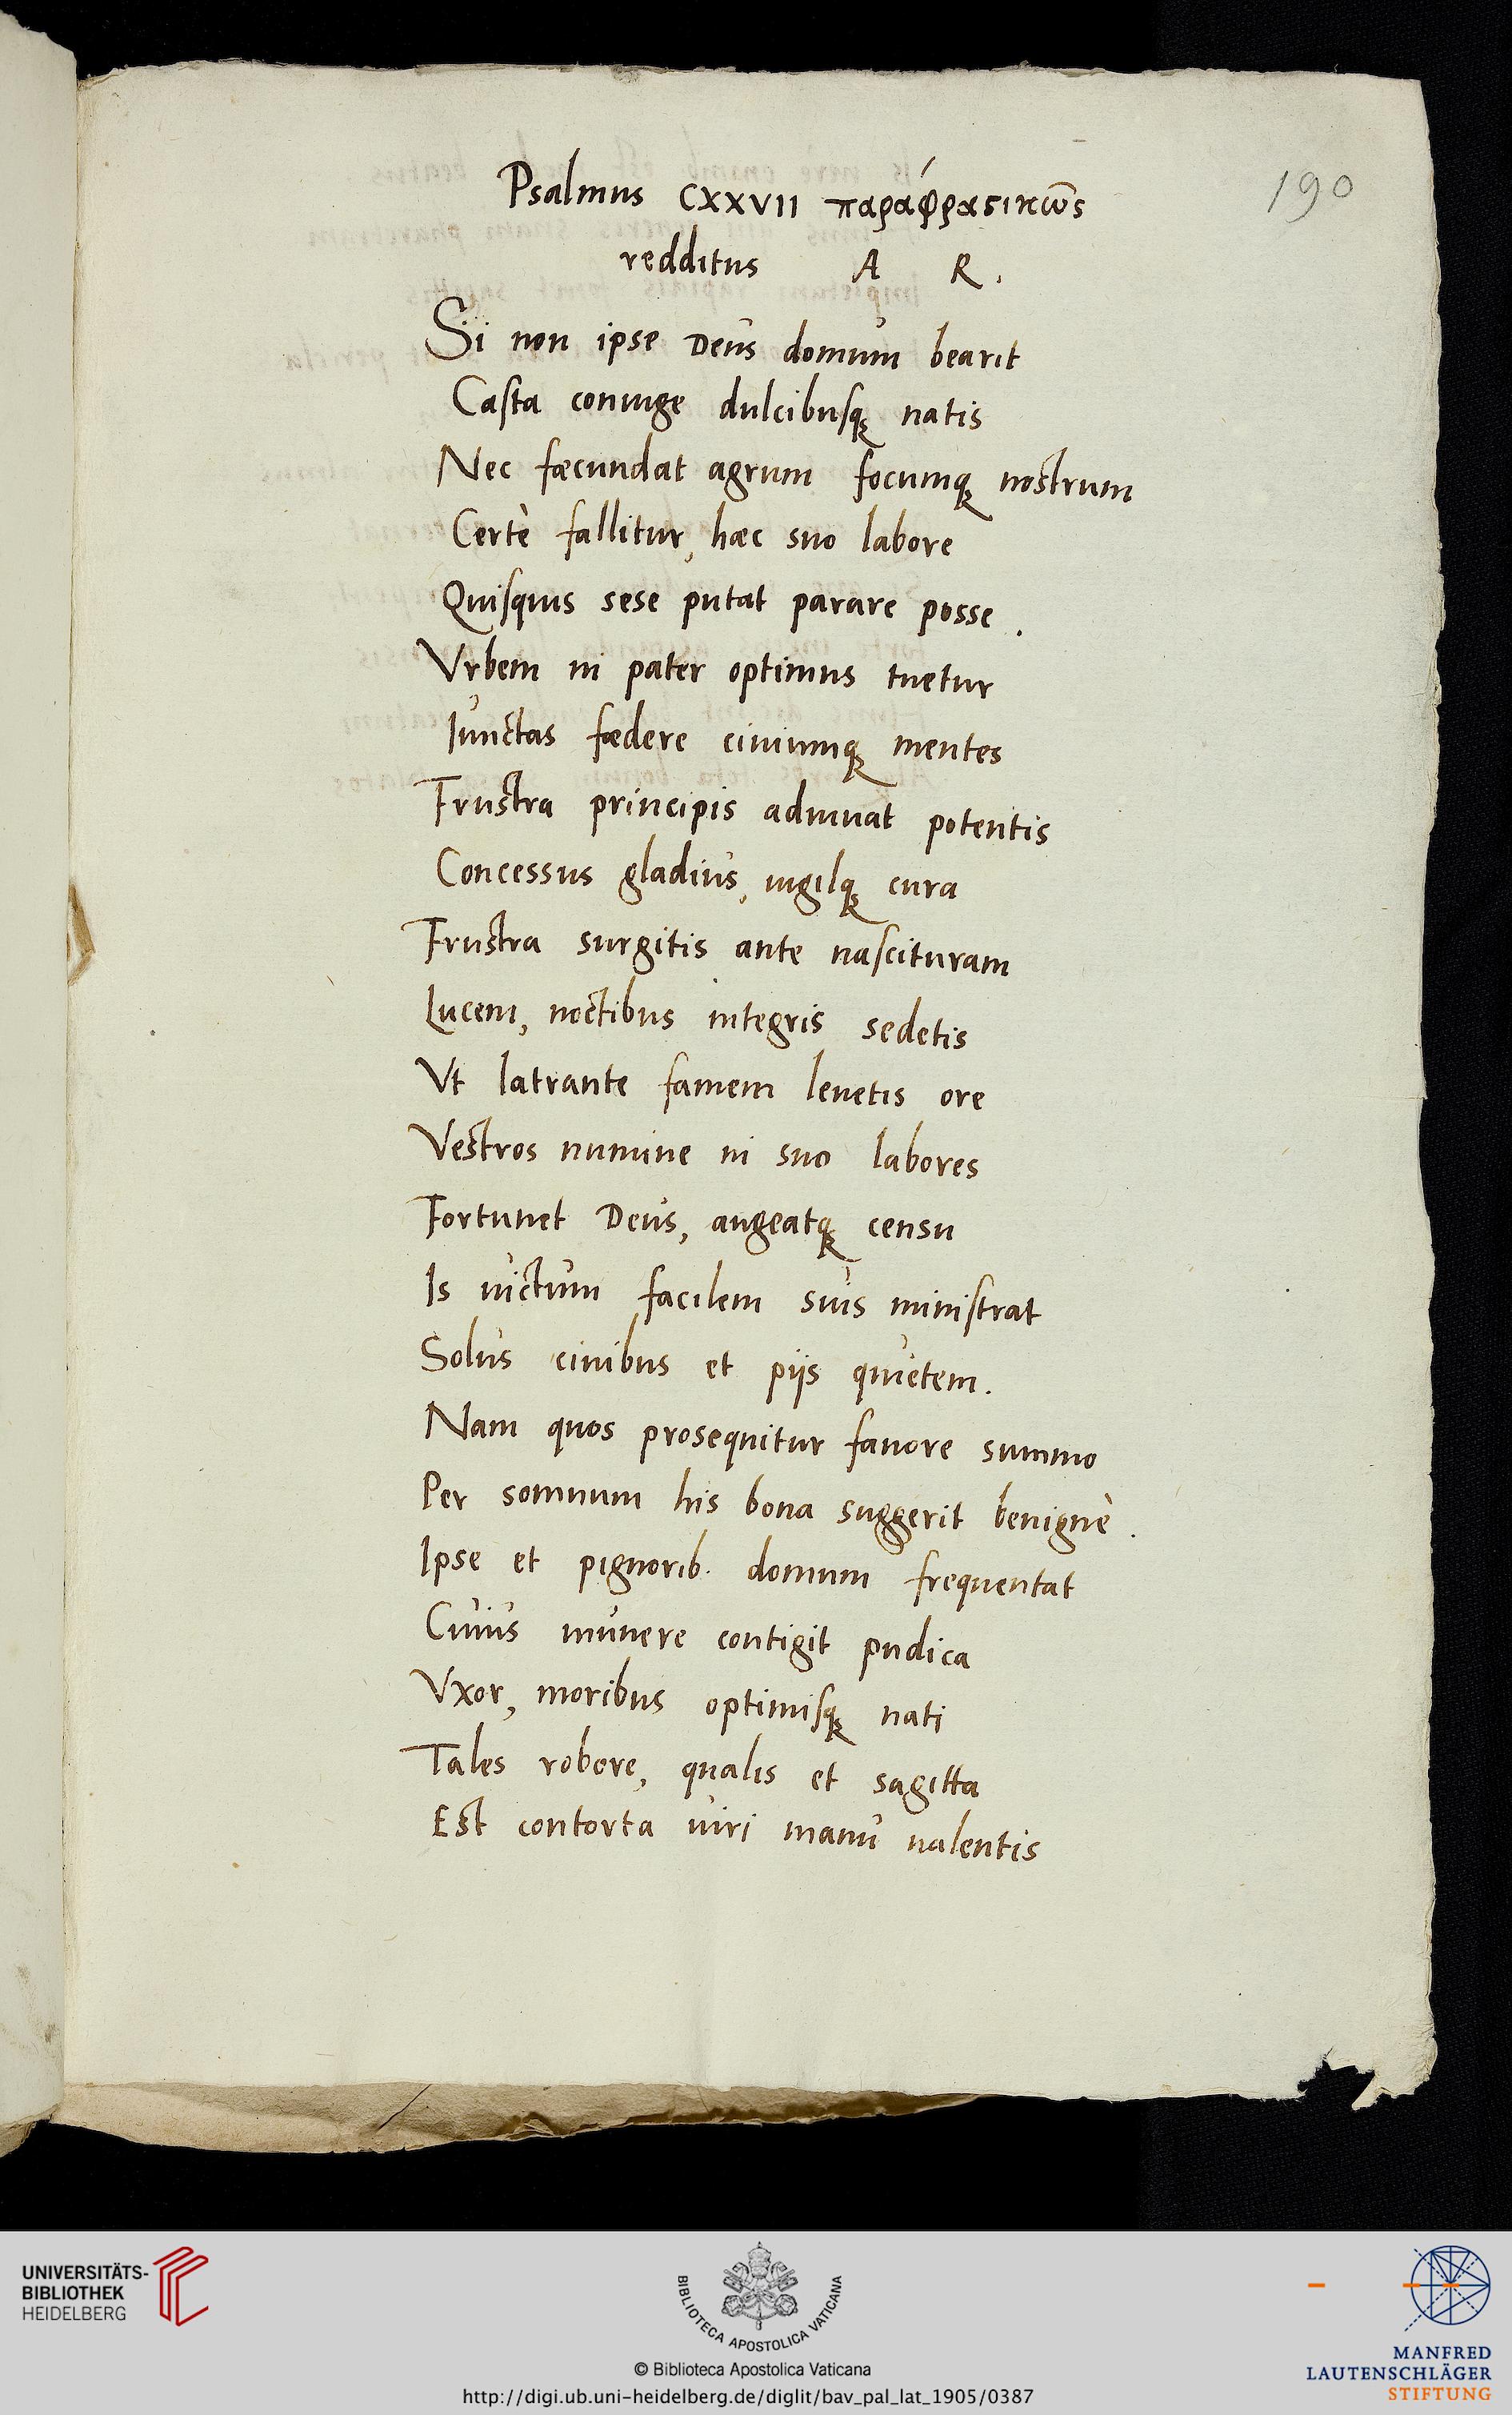 190
Psalmus CXXVII παραφραϛικῶς
redditus A R.
Si non ipse Deus domum bearit
Casta coniuge dulcibusq; natis
Nec fæcundat agrum focumq; nostrum
Certè fallitur, hæc suo labore
Quisquis sese putat parare posse.
Vrbem ni pater optimus tuetur
Iunctas fœdere ciuiumq; mentes
Frustra principis adiuuat potentis
Concessus gladius, uigilq; cura
Frustra surgitis ante nascituram
Lucem, noctibus integris sedetis
Vt latrante famem leuetis ore
Vestros numine ni suo labores
Fortunet Deus, augeatq; censu
Is uictum facilem suis ministrat
Solus ciuibus et pijs quietem.
Nam quos prosequitur fauore summo
Per somnum his bona suggerit benignè.
Ipse et pignorib. domum frequentat
Cuius munere contigit pudica
Vxor, moribus optimisq; nati
Tales robore, qualis et sagitta
Est contorta uiri manu ualentis
UNIVERSITÄTS-
BIBLIOTHEK
HEIDELBERG
BIBLIOTECA APOSTOLICA VATICANA
© Biblioteca Apostolica Vaticana
http://digi.ub.uni-heidelberg.de/diglit/bav_pal_lat_1905/0387
MANFRED
LAUTENSCHLÄGER
STIFTUNG